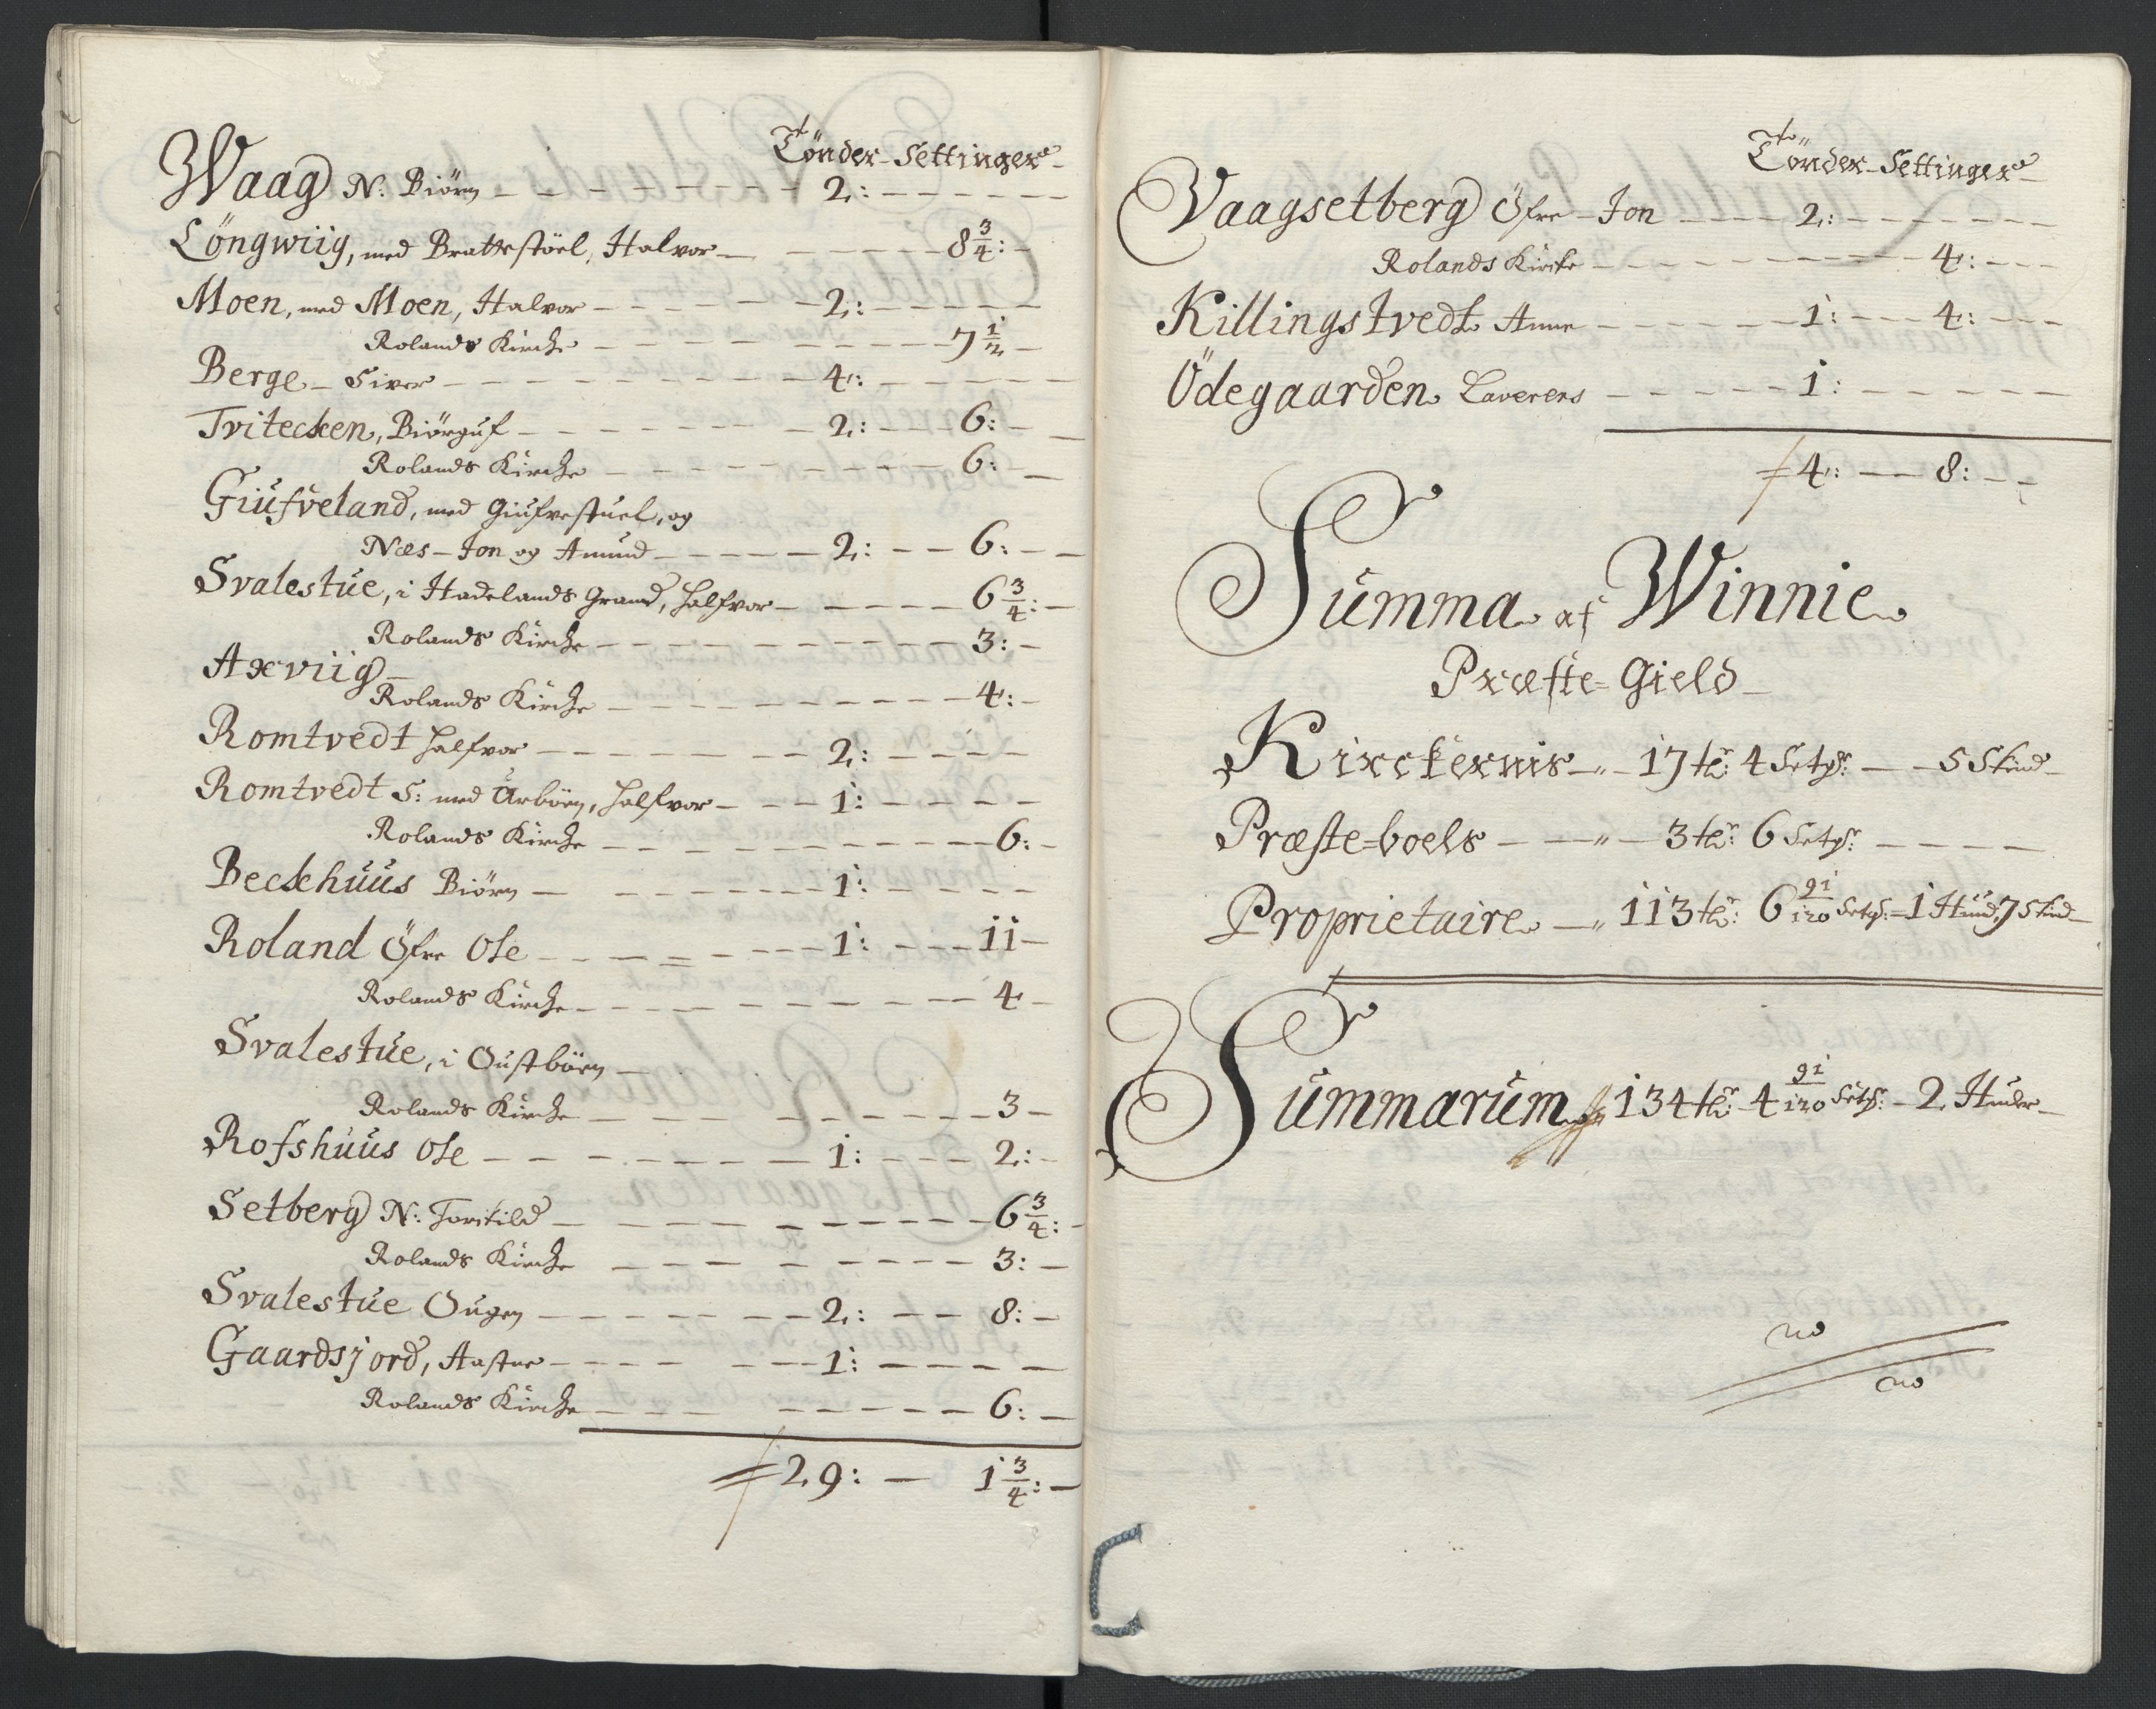 Tönder - Settinger -
Waag N: Biörn - 2: -
Löngwiig, med Brattestöel, Halvor - 8 3/4: -
Moen, med Moen, Halvor - 2: -
Rolands Kirche - 7 1/2 -
Berge - Siver - 4: -
Tvitecken, Biörguf - 2: - 6: -
Rolands Kirche - 6: -
Giufveland, med Giufvestuel, og
Næs - Jon og Amund - 2: - 6: -
Svalestue, i Hadelands Grand, Halfvor - 6 3/4: -
Rolands Kirche - 3: -
Axviig -
Rolands Kirche - 4: -
Romtvedt Halfvor - 2: -
Romtvedt S: med Årbörn, Halfvor - 1: -
Rolands Kirche - 6: -
Beckhuus Biörn - 1: -
Roland Öfre Ole - 1: - 11 -
Rolands Kirche - 4 -
Svalestue, i Oustbörn -
Rolands Kirche - 3 -
Rofshuus Ole - 1: - 2: -
Setberg N: Torikild - 6 3/4: -
Rolands Kirche - 3: -
Svalestue Ougen - 2: - 8: -
Gaardsjord, Aastne - 1: -
Rolands Kirche - 6: -
29: - 1 3/4: -
Tönder - Settinger -
Vaagsetberg Öfre - Jon - 2: -
Rolands Kirke - 4: -
Killingstvedt Anne - 1: - 4: -
Ödegaarden Laverens - 1: -
4: - 8: -
Summa af Winnie
Præste=Gield -
Kirckernis - 17 tr: 4 Setgr: - 5 Skind -
Præste=boels - 3 tr: 6 Setgr: -
Proprietaire - 113 tr: 6 91/120 Setgr: = 1 Huud, 7 Skind -
Summarum 134 tr: 4 91/120 Setgr: - 2 Huder -